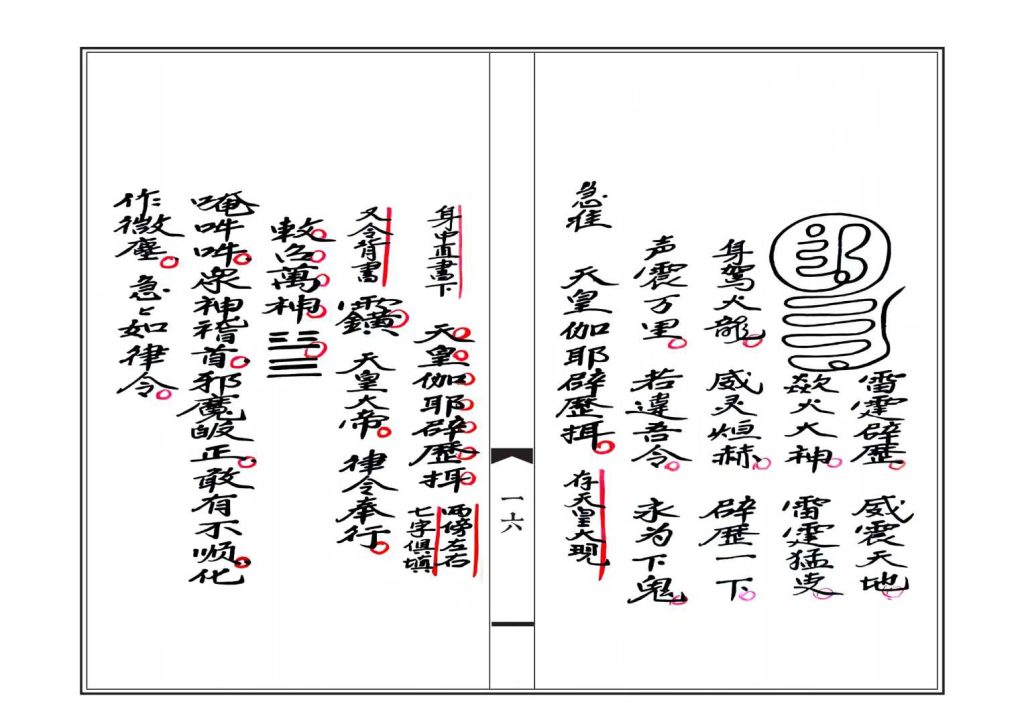 雷霆辟歷。威震天地。
欻火大神。雷霆猛吏。
身驾火龍。威灵烜赫。辟歷一下。
声震万里。若違吾令。永为下鬼。
急 天皇伽耶辟歷揖。存天皇大現
一六
身中直書下 天皇伽耶辟歷揖 两傍左右
七字俱填
又令背書 天皇大帝。律令奉行。
敕召萬神
唵吽吽。眾神稽首。邪魔皈正。敢有不顺。化
作微塵。急々如律令。